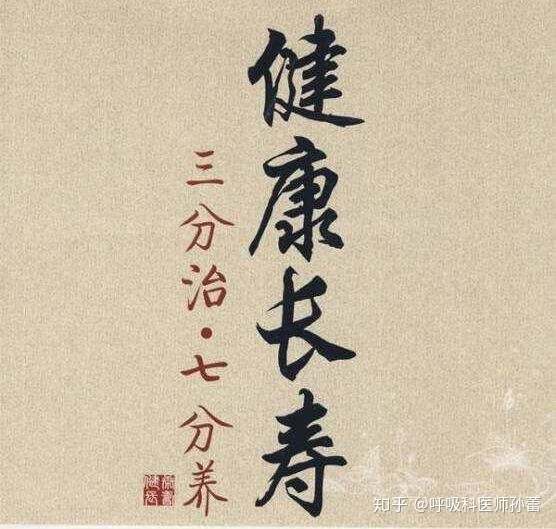 健康长寿
三分治·七分养
知乎 @呼吸科医师孙蕾